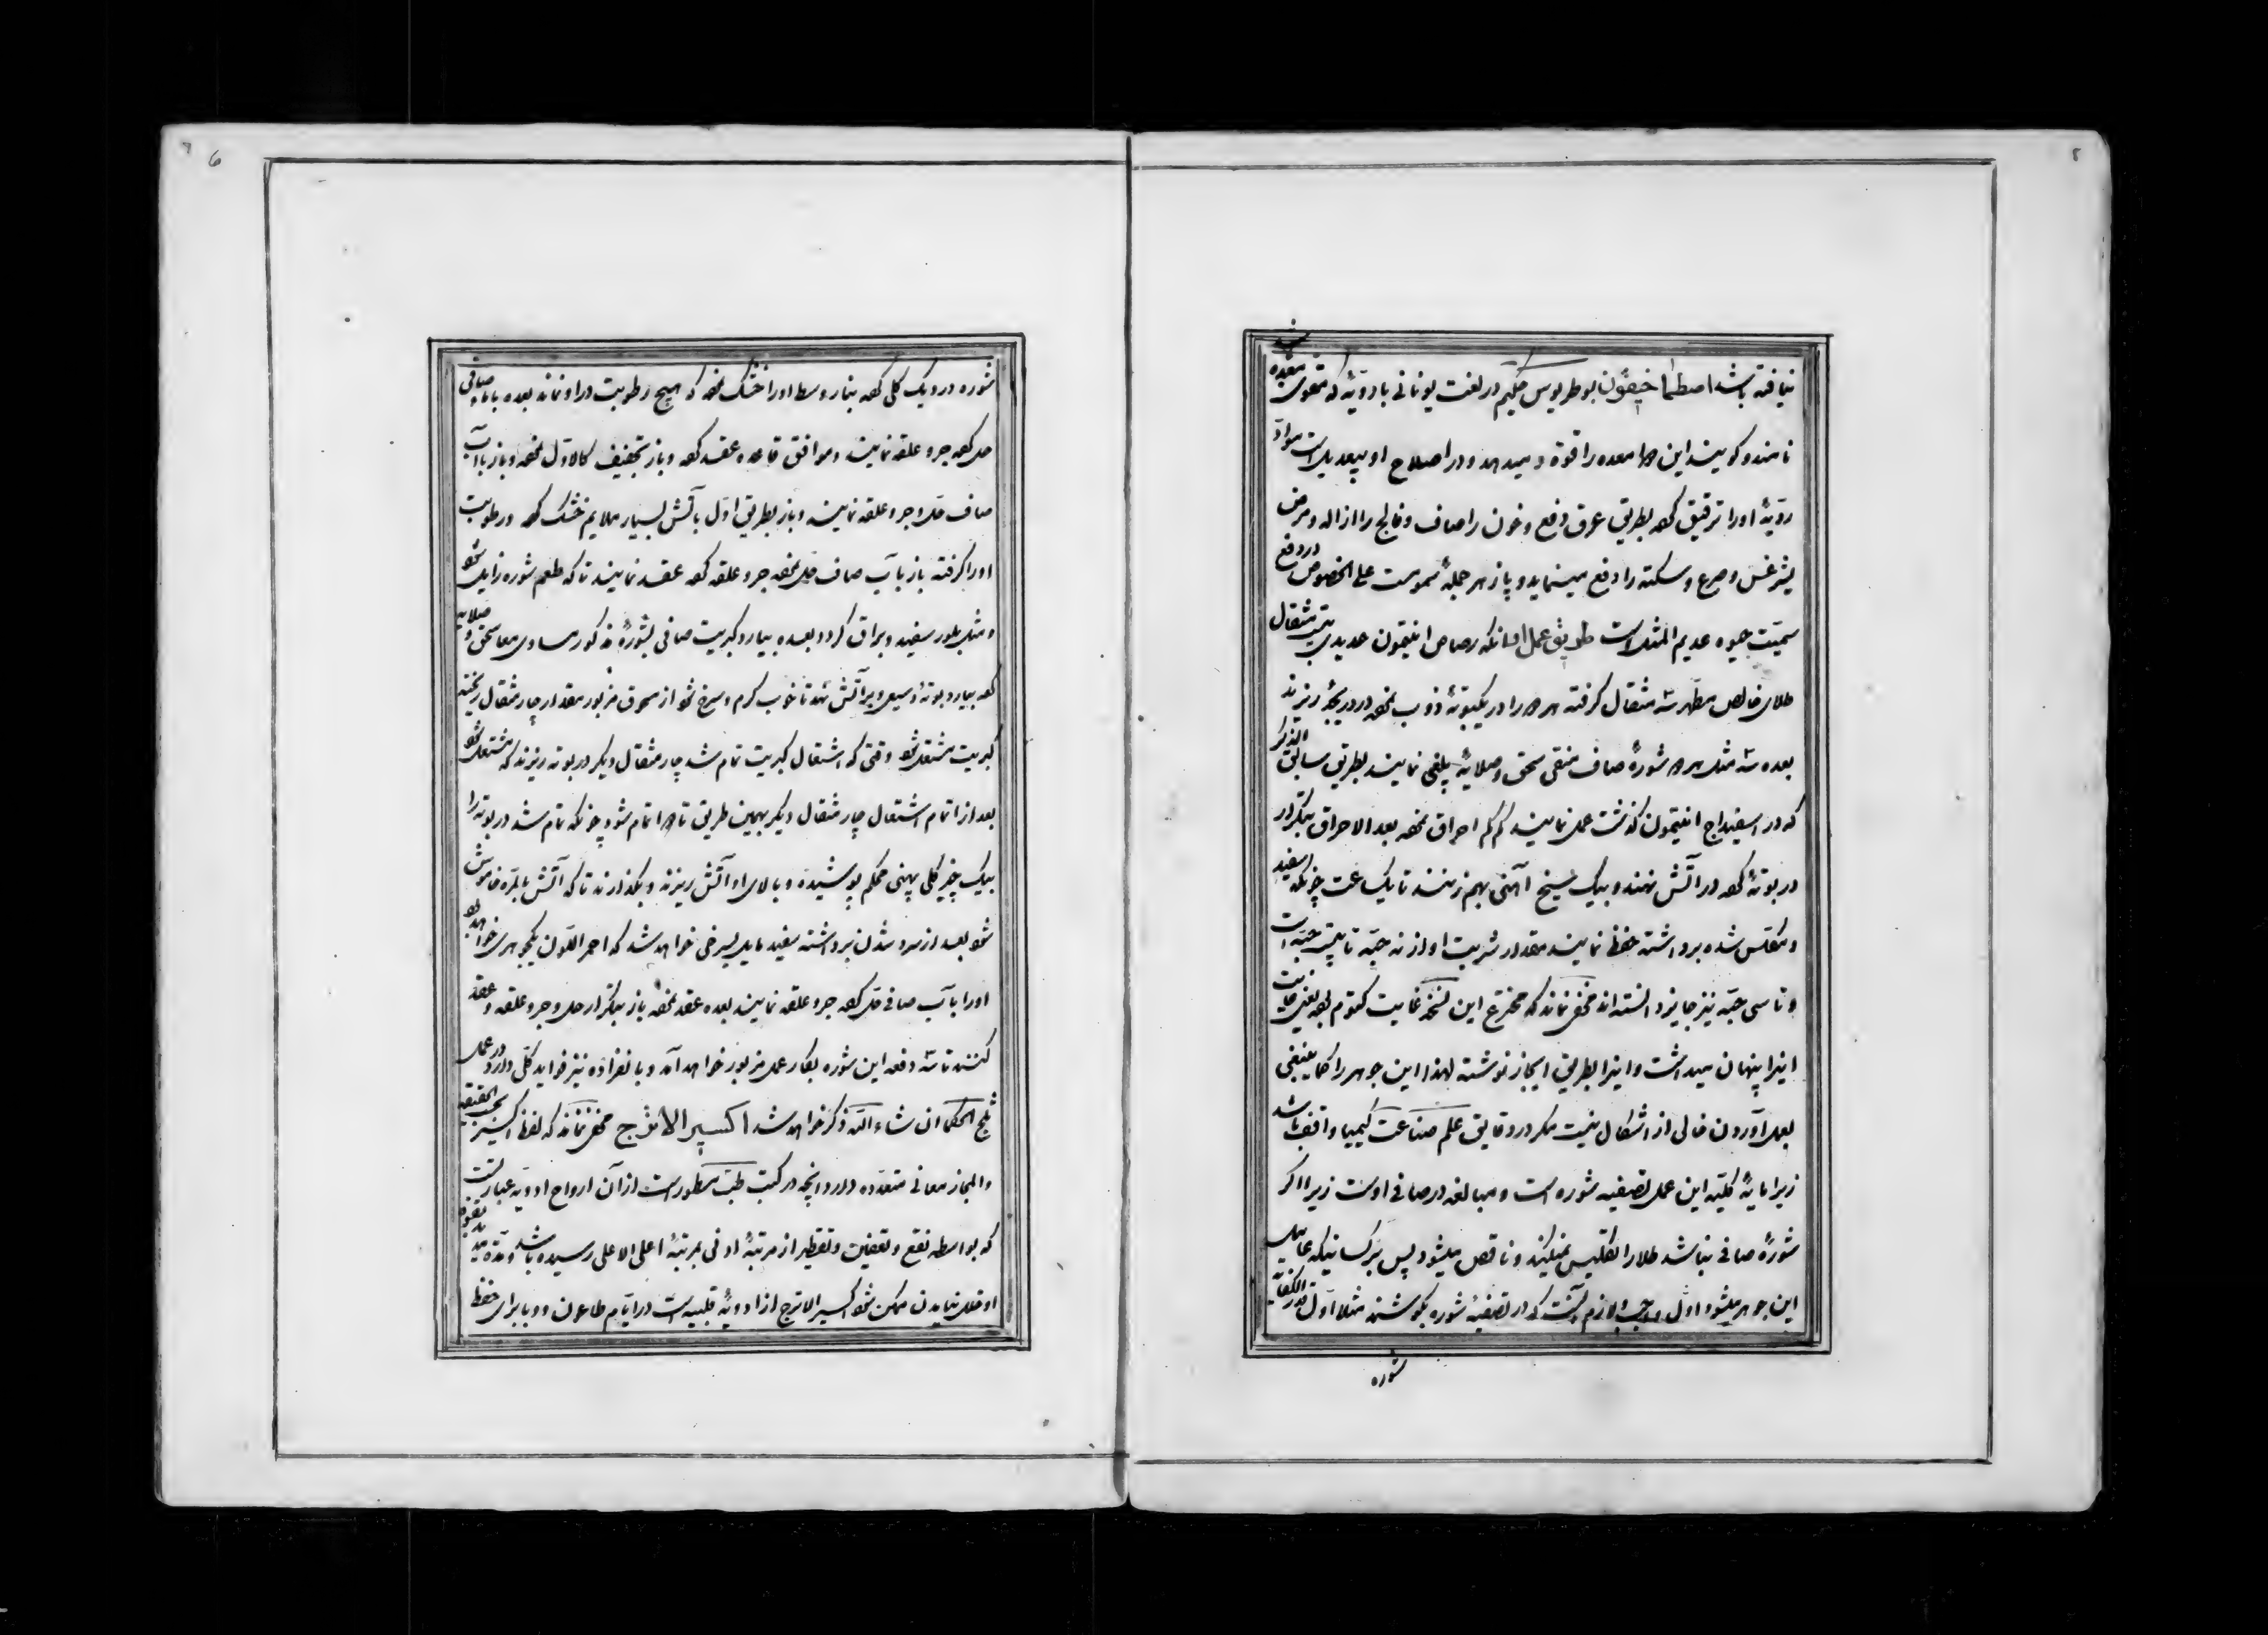 نیافته باشد اصطماخیقون بوطریوس حکیم در لغت یونانی بادویهٔ که مقوی معده باشند
نامند و گویند این دوا معده را قوة میدهد و در اصلاح او بیعدیل است مواد
ردیّهٔ او را ترقیق کرده بطریق عرق دفع و خون را صاف و فالج را ازاله و مرض
لیثرغس و صرع و سکته را دفع مینماید و پازهر جملهٔ سموست علی الخصوص در دفع
سمیّت جیوه عدیم المثل است طریق عمل او آنکه رصاص انتیمون حدیدی بیست مثقال
طلای خالص مطهر سه مثقال گرفته هر دو را در یکبوتهٔ ذوب نموده در دریجهٔ ریزند
بعده سه مثل هر دو شورهٔ صاف منقی سحق و صلایهٔ بلیغی نمایند بطریق سابق الذکر
که در اسفیداج انتیمون گذشت عمل نمایند کم کم احراق نموده بعد الاحراق بتکرار
در بوتهٔ کرده در آتش نهند و بیک سیخ آهنی بهم زنند تا یک ساعت چونکه اسفید
و مکلس شده برداشته حفظ نمایند مقدار شربت او از نه حبّه تا بیست حبّه است
و تا سی حبّه نیز جایز دانسته اند مخفی نماند که مخترع این نسخه غایت مکتوم بوده یعنی غایت
اینرا پنهان میداشت و اینرا بطریق ایجاز نوشته لهذا این جوهر را کما ینبغی
بعمل آوردن خالی از اشکال نیست مگر در دقایق علم صناعت کیمیا واقف باشد
زیرا مایهٔ کلیّه این عمل تصفیه شوره است و مبالغه در صافی اوست زیرا اگر
شورهٔ صافی نباشد طلا را تکلیس نمیکند و ناقص میشود پس بر کسانیکه عامل
این جوهر میشود اوّل واجب و لازم آنست که در تصفیهٔ شوره بکوشند مثلا اول قدر الکفایه
شوره
شوره در دیک گلی کرده بنار وسط او را خشک نموده که هیچ رطوبت در او نماند بعده با ماء صافی
حل کرده جر و علقه نمایند و موافق قاعده عقد کرده و باز تجفیف کالاوّل نموده و باز با آب
صاف حل و جر و علقه نمایند و باز بطریق اوّل بآتش بسیار ملایم خشک کرده و رطوبت
او را گرفته باز بآب صاف حل نموده جر و علقه کرده عقد نمایند تا که طعم شوره زایل شود
و مثل بلور سفید و براق گردد بعده بیارد کبریت صافی بشورهٔ مذکور مساوی معا سحق و صلایه
کرده بیارد بوتهٔ وسیعی و بر آتش نهد تا خوب گرم و سرخ شود از مسحوق مزبور مقدار چار مثقال ریخته
کبریت مشتعل شود وقتی که اشتعال کبریت تمام شد چار مثقال دیگر در بوته ریزند که مشتعل شود
بعد از اتمام اشتعال چار مثقال دیگر بهمین طریق تا دوا تمام شود چونکه تمام شد در بوته را
بیک چیز گلی پهنی محکم پوشیده و بالای او آتش ریزند و بگذارند تا که آتش بالمره خاموش
شود بعد از سرد شدن برداشته سفید مایل بسرخی خواهد شد که احمر اللون یکجوهری خواهد بود
او را بآب صافی حل کرده جر و علقه نمایند بعده عقد نموده باز بتکرار حل و جر و علقه و عقد
کنند تا سه دفعه این شوره بکار عمل مزبور خواهد آمد و بانفراده نیز فواید کلی دارد در عمل
ثلج الحکما ان شاء الله ذکر خواهد شد اکسیر الاترج مخفی نماند که لفظ اکسیر بحسب الحقیقه
والمجاز معانی متعدده دارد و آنچه در کتب طب مسطور است از آن ارواح ادویّه عبارتست
که بواسطه نقع و تعفین و تقطیر از مرتبهٔ ادنی بمرتبهٔ اعلی الاعلی رسیده باشد و
او عقل نماید ن ممکن شود اکسیر الاترج از ادویهٔ قلبیه است در ایّام طاعون و وبا برای حفظ